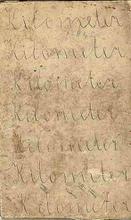 Kilometer
Kilometer
Kilometer
Kilometer
Kilometer
Kilometer
Kilometer